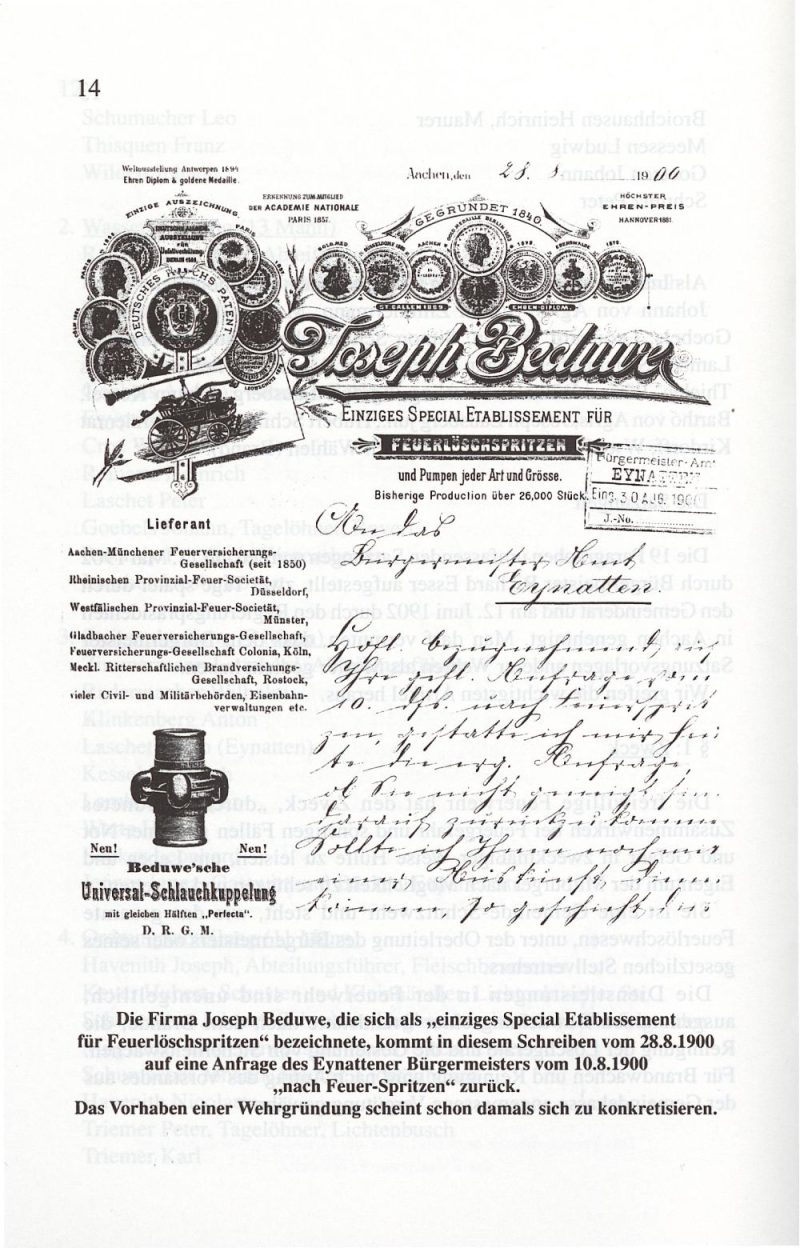 14
Weltausstellung Antwerpen 1894
Ehren Diplom & goldene Medaille.
ERNENNUNG ZUM MITGLIED
DER ACADEMIE NATIONALE
PARIS 1857.
Aachen, den 28. 8. 1900
HÖCHSTER
EHREN-PREIS
HANNOVER 1881.
EINZIGE AUSZEICHNUNG
GEGRÜNDET 1840.
DEUTSCHES REICHS PATENT
ST. GALLEN
EHREN-DIPLOM
Joseph Beduwe
EINZIGES SPECIAL ETABLISSEMENT FÜR
FEUERLÖSCHSPRITZEN
und Pumpen jeder Art und Grösse.
Bisherige Production über 26,000 Stück.
Bürgermeister-Amt
EYNATTEN
Eing. 30 AUG. 1900
J.-No.
Lieferant
Aachen-Münchener Feuerversicherungs-
Gesellschaft (seit 1850)
Rheinischen Provinzial-Feuer-Societät,
Düsseldorf,
Westfälischen Provinzial-Feuer-Societät,
Münster,
Gladbacher Feuerversicherungs-Gesellschaft,
Feuerversicherungs-Gesellschaft Colonia, Köln,
Meckl. Ritterschaftlichen Brandversicherungs-
Gesellschaft, Rostock,
vieler Civil- und Militärbehörden, Eisenbahn-
verwaltungen etc.
An das
Bürgermeister Amt
Eynatten.
Höfl. bezugnehmend auf
Ihre gefl. Anfrage vom
10. dss. nach Feuersprit
zen gestatte ich mir heu
te die erg. Anfrage,
ob Sie nicht geneigt sind
darauf zurückzukommen
Sollte ich Ihnen noch mit
einer Auskunft dienen
können, so geschieht dies
Neu! Neu!
Beduwe'sche
Universal-Schlauchkuppelung
mit gleichen Hälften „Perfecta".
D. R. G. M.
Die Firma Joseph Beduwe, die sich als „einziges Special Etablissement
für Feuerlöschspritzen“ bezeichnete, kommt in diesem Schreiben vom 28.8.1900
auf eine Anfrage des Eynattener Bürgermeisters vom 10.8.1900
„nach Feuer-Spritzen“ zurück.
Das Vorhaben einer Wehrgründung scheint schon damals sich zu konkretisieren.